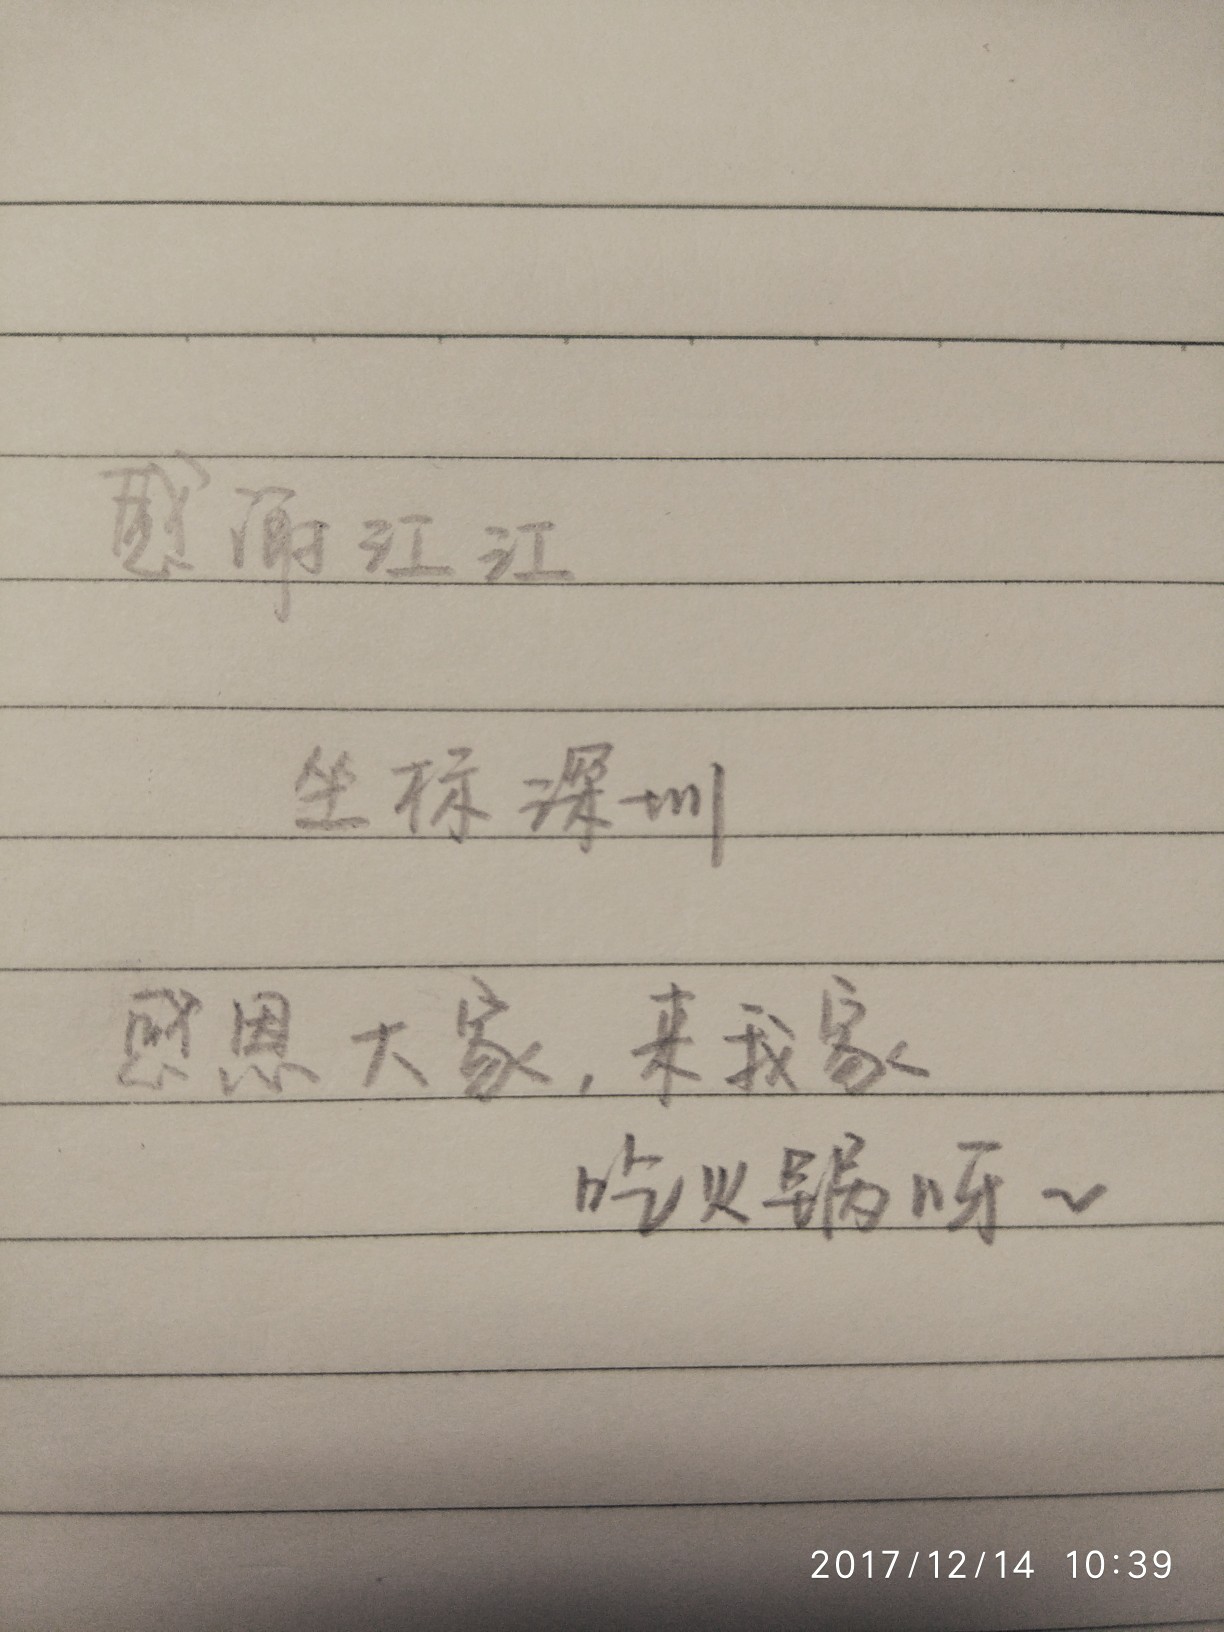 感谢江江
坐标深圳
感恩大家,来我家
吃火锅呀~
2017/12/14 10:39